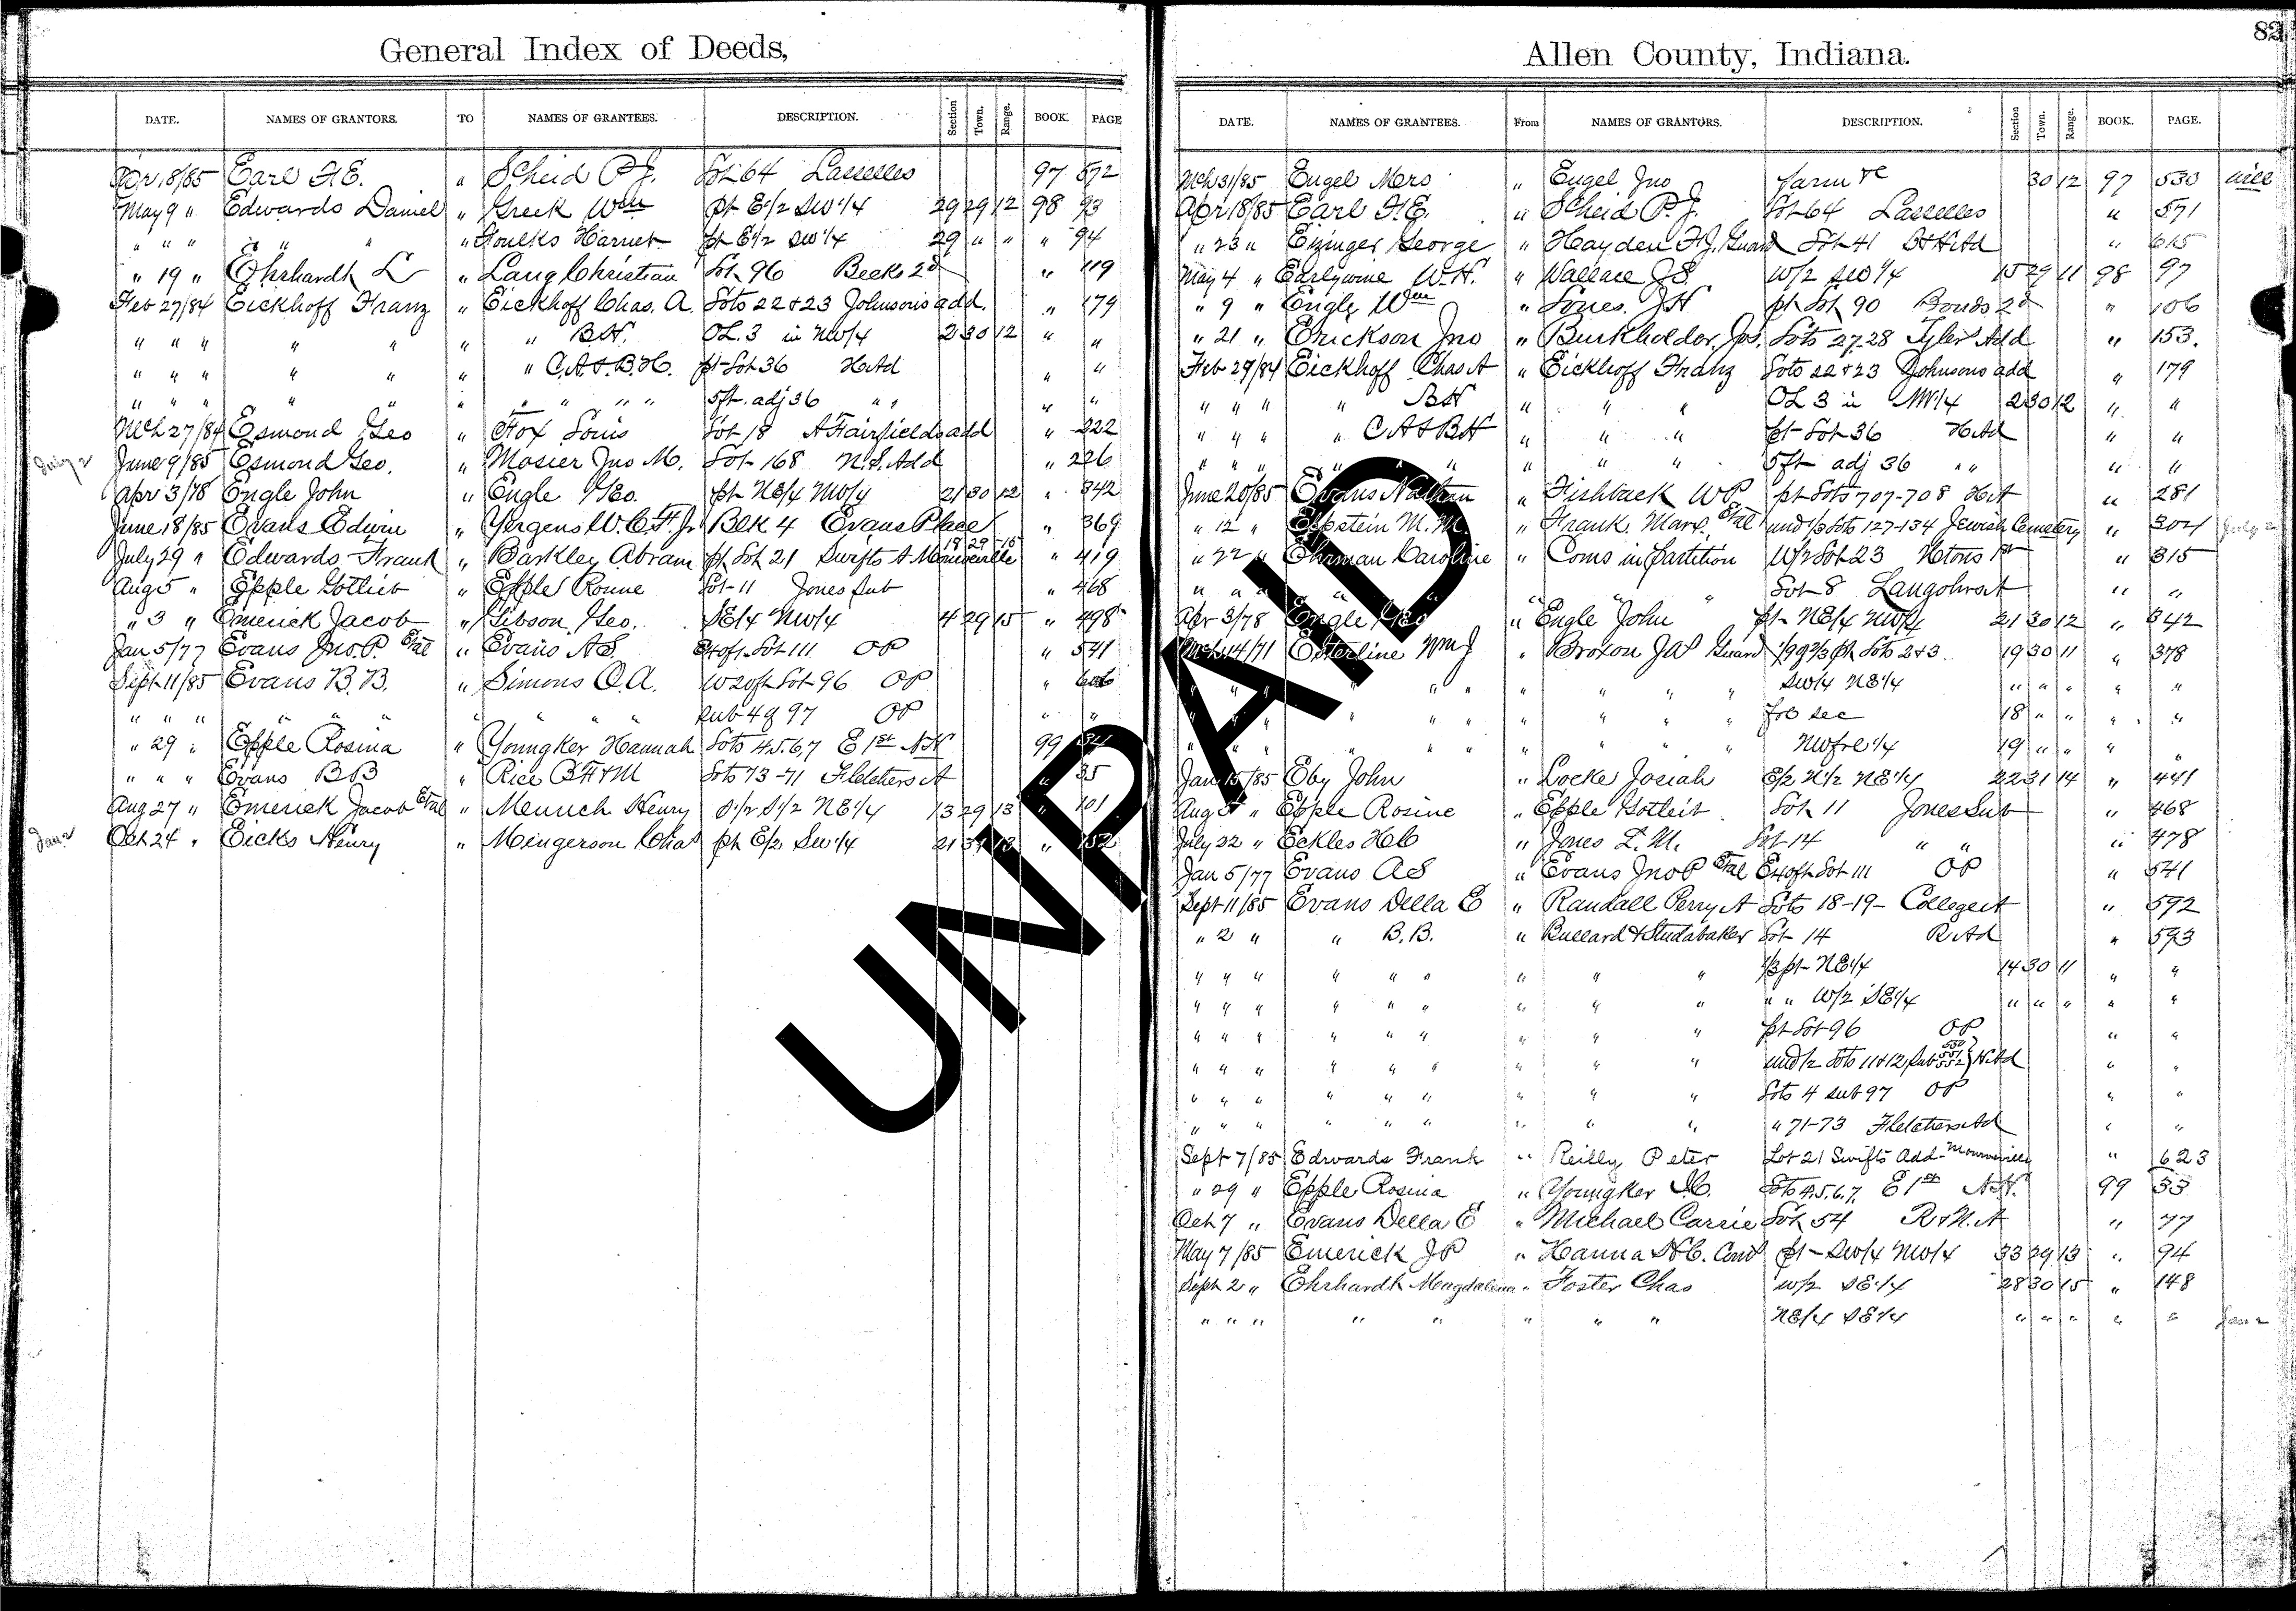 General Index of Deeds,
DATE. NAMES OF GRANTORS. TO NAMES OF GRANTEES. DESCRIPTION. Section Town. Range. BOOK. PAGE
Apr 18/85 Earl F.E. " Scheid P.J. Lot 64 Lasselles 97 572
May 9 " Edwards Daniel " Greek Wm pt E1/2 SW1/4 29 29 12 98 93
" " " " " " Foulks Harriet pt E1/2 SW1/4 29 " " " 94
" 19 " Ehrhardt L " Lang Christian Lot 96 Becks 2d " 119
Feb 27/84 Eickhoff Franz " Eickhoff Chas. A. Lots 22 & 23 Johnsons add. " 179
" " " " " " " B.H. OL. 3 in NW1/4 2 30 12 " "
" " " " " " " C.A. & B.H. pt Lot 36 HAd " "
" " " " " " " " " " 5 ft. adj 36 " " " "
Mch 27/84 Esmond Geo " Fox Louis Lot 18 A Fairfields add " 222
July 2 June 9/85 Esmond Geo. " Mosier Jno M. Lot 168 N.S. Add " 226
Apr 3/78 Engle John " Engle Geo. pt NE1/4 NW1/4 21 30 12 " 342
June 18/85 Evans Edwin " Yergens W.C.F. Jr Blk 4 Evans Place " 369
July 29 " Edwards Frank " Barkley Abram pt Lot 21 Swifts A Monroeville 19 29 15 " 419
Aug 5 " Epple Gotlieb " Epple Rosine Lot 11 Jones Sub " 468
" 3 " Emerick Jacob " Gibson Geo. SE1/4 NW1/4 4 29 15 " 498
Jan 5/77 Evans Jno. P Etal " Evans A S E40ft Lot 111 OP " 541
Sept 11/85 Evans B.B. " Simons O.A. W20ft Lot 96 OP " 606
" " " " " " " " " " Sub 4 of 97 OP " "
" 29 " Epple Rosina " Youngker Hannah Lots 4.5.6.7 E 1st NH 99 34
" " " Evans BB " Rice B F & M Lots 73-71 Fletchers A " 35
Aug 27 " Emerick Jacob Etal " Meurich Henry S1/2 S1/2 NE1/4 13 29 13 " 101
Jan 2 Oct 24 " Eicks Henry " Mingerson Chas pt E1/2 SW1/4 21 31 13 " 152
Allen County, Indiana.
82
DATE. NAMES OF GRANTEES. From NAMES OF GRANTORS. DESCRIPTION. Section Town. Range. BOOK. PAGE.
Mch 31/85 Engel Mero " Engel Jno farm &c 30 12 97 530 Will
Apr 18/85 Earl F.E. " Scheid P.J. Lot 64 Lasselles " 571
" 23 " Eizinger George " Hayden F.J. Guard Lot 41 " 615
May 4 " Earlywine W.H. " Wallace J S. W1/2 SW1/4 15 29 11 98 97
" 9 " Engle Wm " Jones. J H pt Lot 90 Bonds 2d " 106
" 21 " Erickson Jno " Burkholder, Jos. Lots 27.28 Tyler Add " 153.
Feb 27/84 Eickhoff Chas A " Eickhoff Franz Lots 22 & 23 Johnsons add " 179
" " " " BH " " " OL 3 in NW1/4 2 30 12 " "
" " " " C A & B H " " " pt Lot 36 HAd " "
" " " " " " " " " 5 ft adj 36 " " " "
June 20/85 Evans Nathan " Fishback W P pt Lots 707-708 HA " 281
" 12 " Eppstein M. M. " Frank, Marx, Etal und 1/3 Lots 127-134 Jewish Cemetery " 304 July 2
" 22 " Ehrman Caroline " Coms in Partition W1/2 Lot 23 1st " 315
" " " " " " " " Lot 8 " "
Apr 3/78 Engle Geo " Engle John pt NE1/4 NW1/4 21 30 12 " 342
Mch 14/71 Esterline Wm J " Broxon Jas Guard pt Lots 2 & 3 19 30 11 " 378
" " " " " " " " " SW1/4 NE1/4 " " " " "
" " " " " " " " " frl sec 18 " " " "
" " " " " " " " " NWfrl1/4 19 " " " "
Jan 15/85 Eby John " Locke Josiah E1/2 N1/2 NE1/4 22 31 14 " 441
Aug 5 " Epple Rosine " Epple Gotleib Lot 11 Jones Sub " 468
July 22 " Eckles H C " Jones L. M. Lot 14 " " " 478
Jan 5/77 Evans A S " Evans Jno P Etal E40ft Lot 111 OP " 541
Sept 11/85 Evans Della E " Randall Perry A Lots 18-19- College A " 592
" 2 " " B.B. " Bullard & Studabaker Lot 14 R Ad " 593
" " " " " " " " " 1/3 pt NE1/4 14 30 11 " "
" " " " " " " " " " " W1/2 SE1/4 " " " " "
" " " " " " " " " pt Lot 96 OP " "
" " " " " " " " " und 1/2 Lots 11 & 12, Sub 550 551 552 } HAd " "
" " " " " " " " " Lots 4 sub 97 OP " "
" " " " " " " " " " 71-73 Fletchers Ad " "
Sept 7/85 Edwards Frank " Reilly Peter Lot 21 Swifts Add- Monroeville " 623
" 29 " Epple Rosina " Youngker H. Lots 4.5.6.7. E 1st NH. 99 33
Oct 7 " Evans Della E " Michael Carrie Lot 54 R & H. A " 77
May 7/85 Emerick J P " Hanna H C. Comr pt SW1/4 NW1/4 33 29 13 " 94
Sept 2 " Ehrhardt Magdalena " Foster Chas W1/2 SE1/4 28 30 15 " 148
" " " " " " " " NE1/4 SE1/4 " " " " " Jan 2
UNPAID